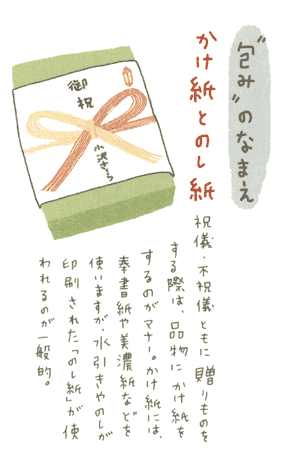 “包み”のなまえ
かけ紙とのし紙
祝儀・不祝儀ともに贈りものを
する際は、品物にかけ紙を
するのがマナー。かけ紙には、
奉書紙や美濃紙などを
使いますが、水引きやのしが
印刷された「のし紙」が使
われるのが一般的。
御祝
小沢さくら